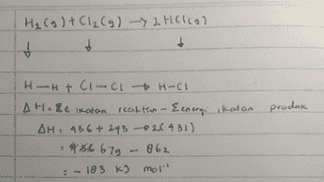 H₂(g) + Cl₂(g) → 2 HCl(g)
↓ ↓ ↓
H — H + Cl — Cl → H-Cl
ΔH = Σe ikatan reaktan - Σenergi ikatan produk
ΔH = 436 + 243 - 2(431)
= 679 - 862
= - 183 kJ mol⁻¹